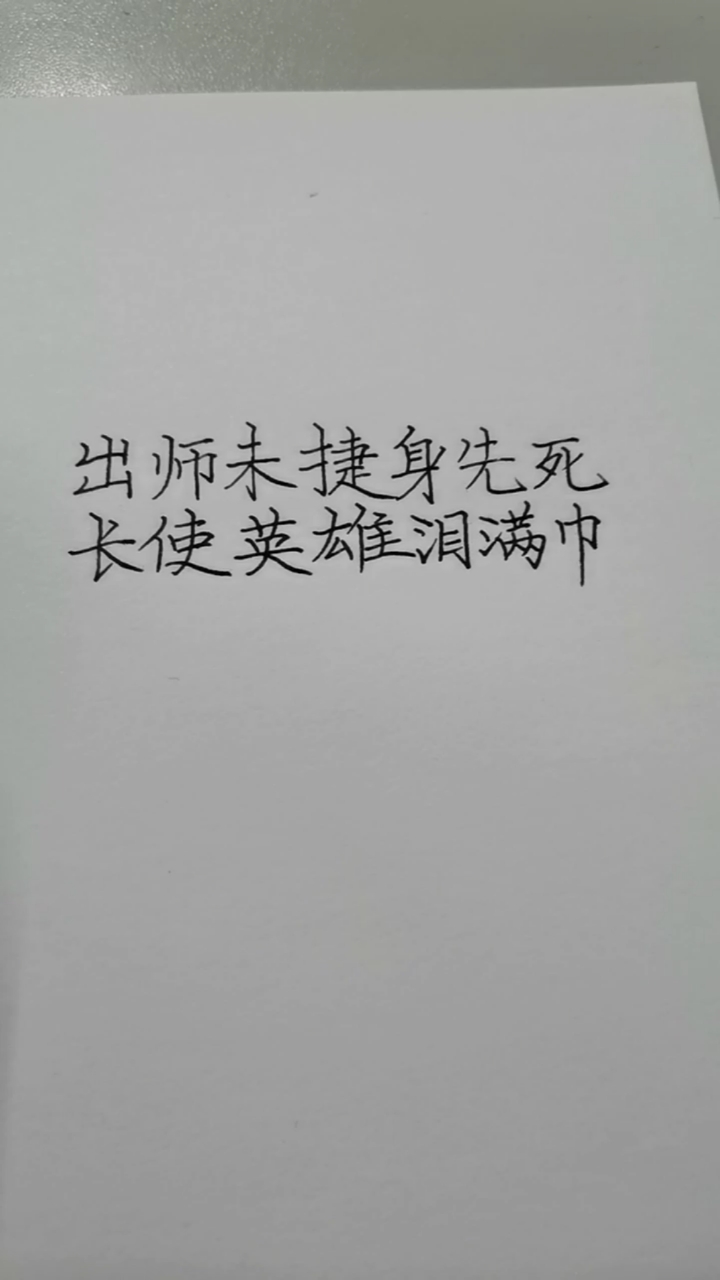 出师未捷身先死
长使英雄泪满巾